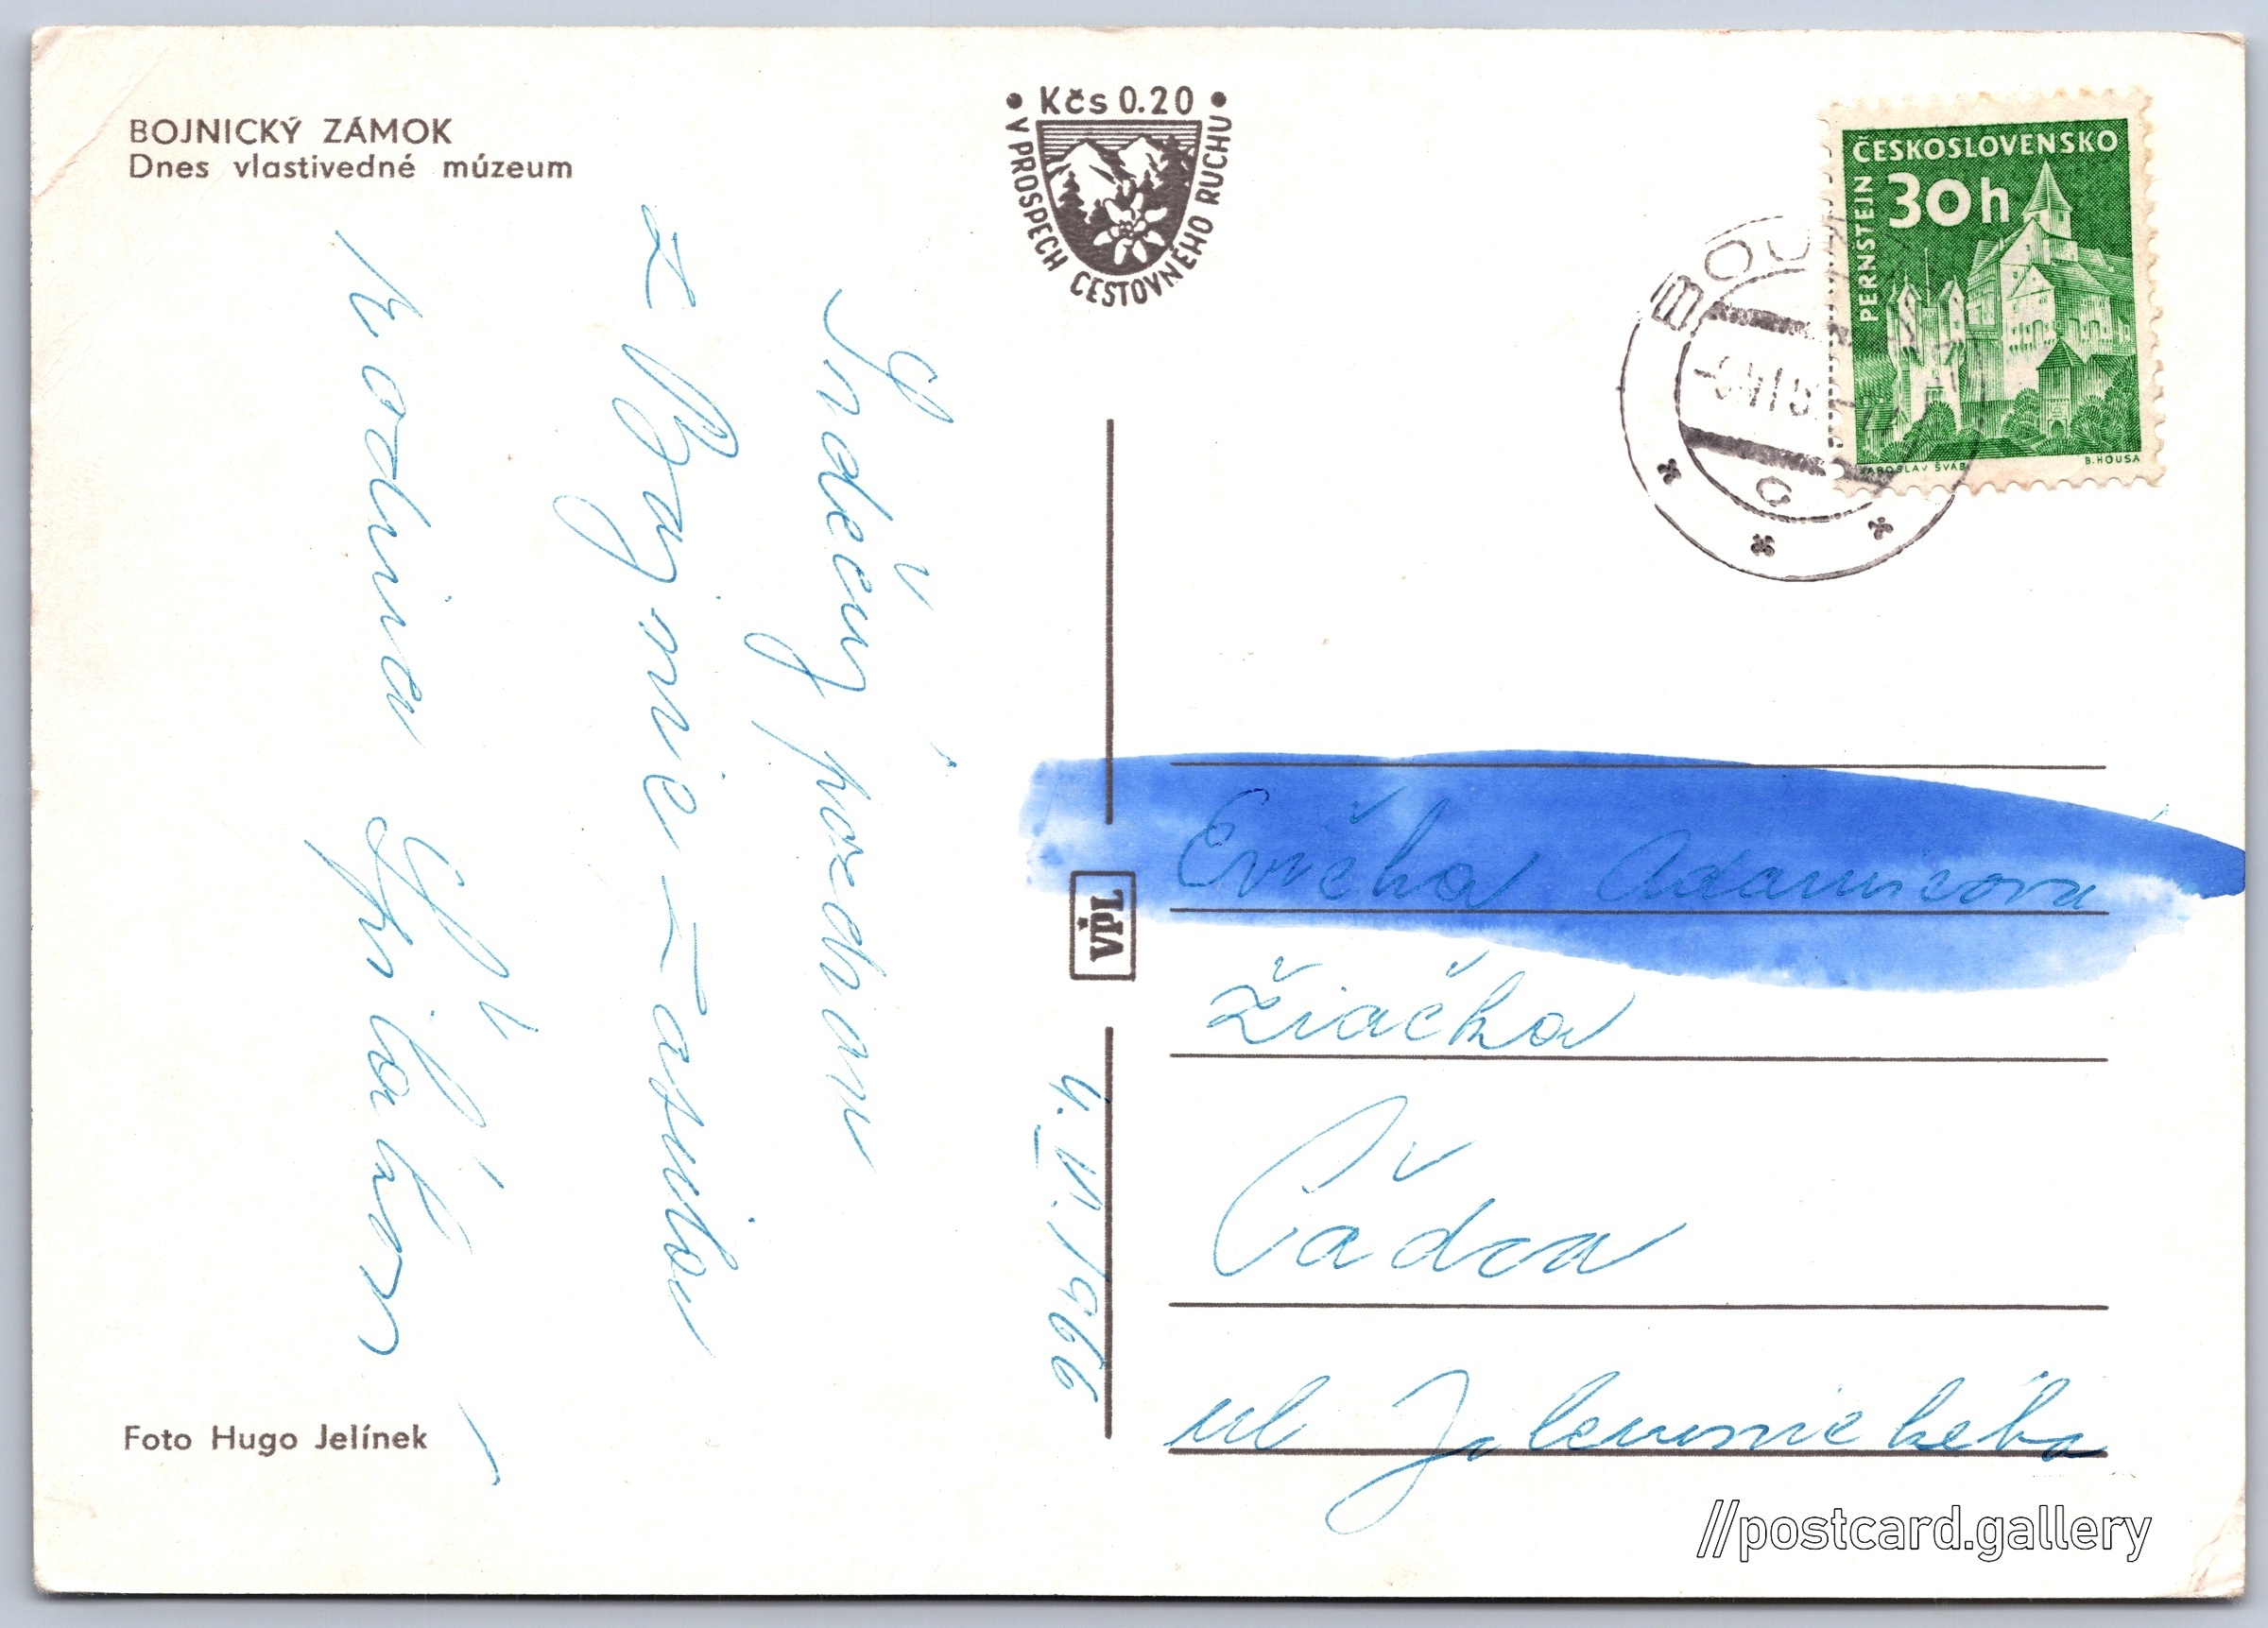 BOJNICKÝ ZÁMOK
Dnes vlastivedné múzeum
• Kčs 0.20 •
V PROSPECH CESTOVNÉHO RUCHU
ČESKOSLOVENSKO
30h
PERNŠTEJN
JAROSLAV ŠVÁB
B. HOUSA
BOJN
c
4. VI. 1966
Srdečný pozdrav
z Bojníc – zasiela
rodina
VPL
Evička Adamicová
Žiačka
Čadca
ul Jilemnického
Foto Hugo Jelínek
//postcard.gallery